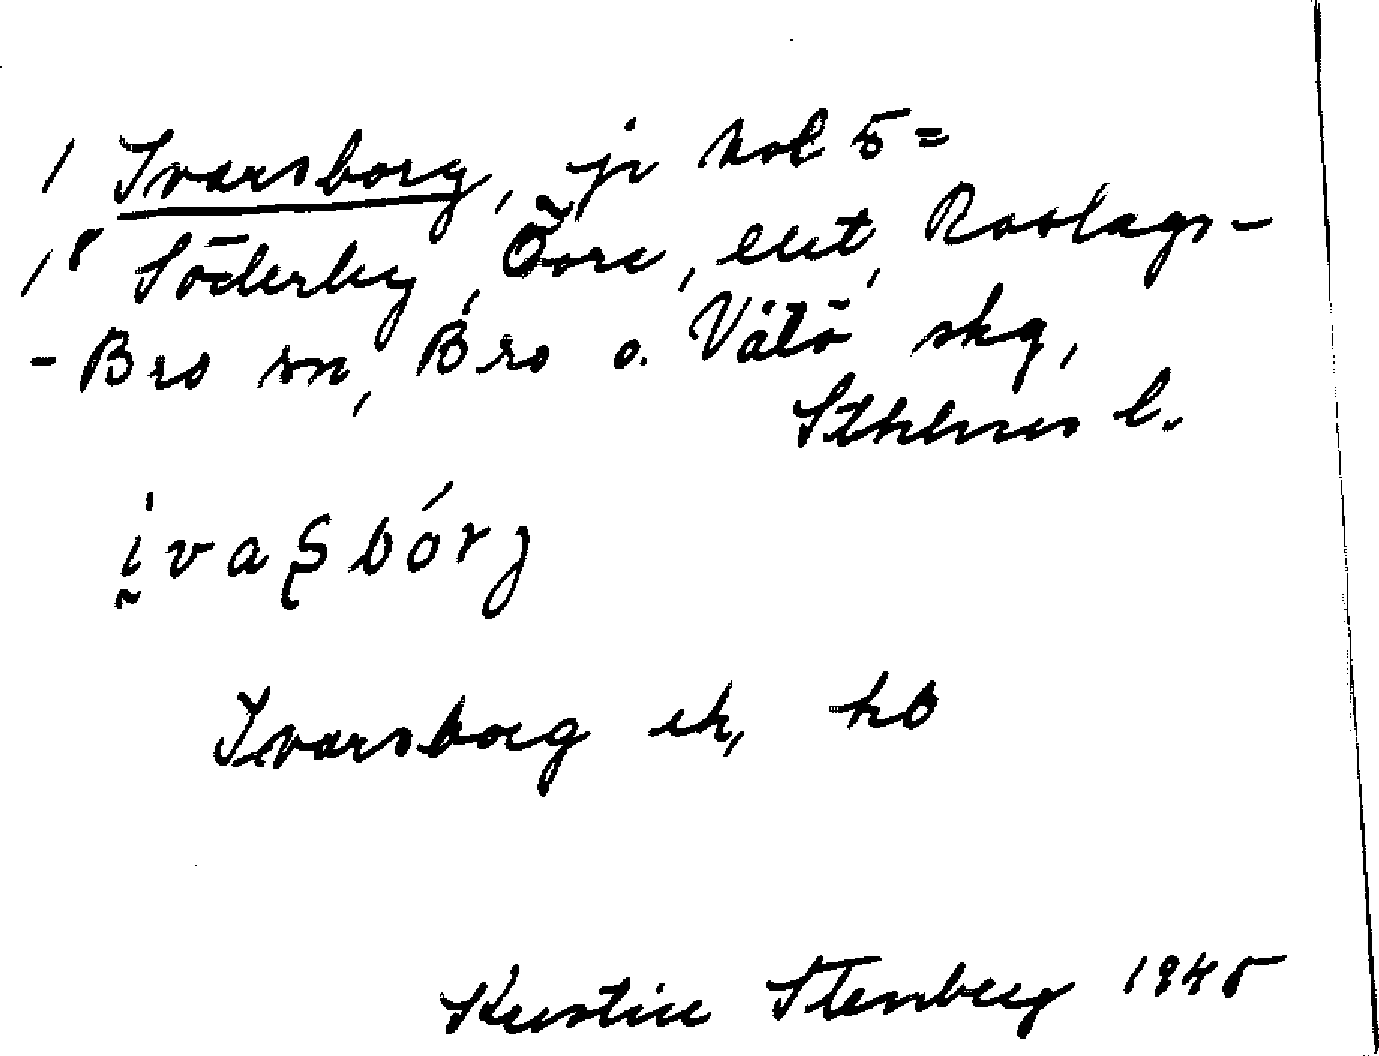 1 Ivarsborg, jr kol 5=
1⁸ Söderby, Öore, eut, Roslags-
-Bro sn, Bro o. Vätö skg,
Sthlms l.
ivaʂbórj
Ivarsborg ek, kB
Kerstin Stenberg 1945